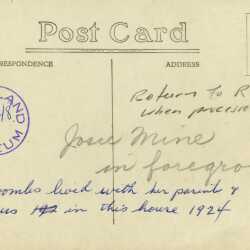 Post Card
RESPONDENCE
ADDRESS
Return to R
when process
AND
48
UM
Josie Mine
in foregro
oombs lived with her parents &
us in this house 1924